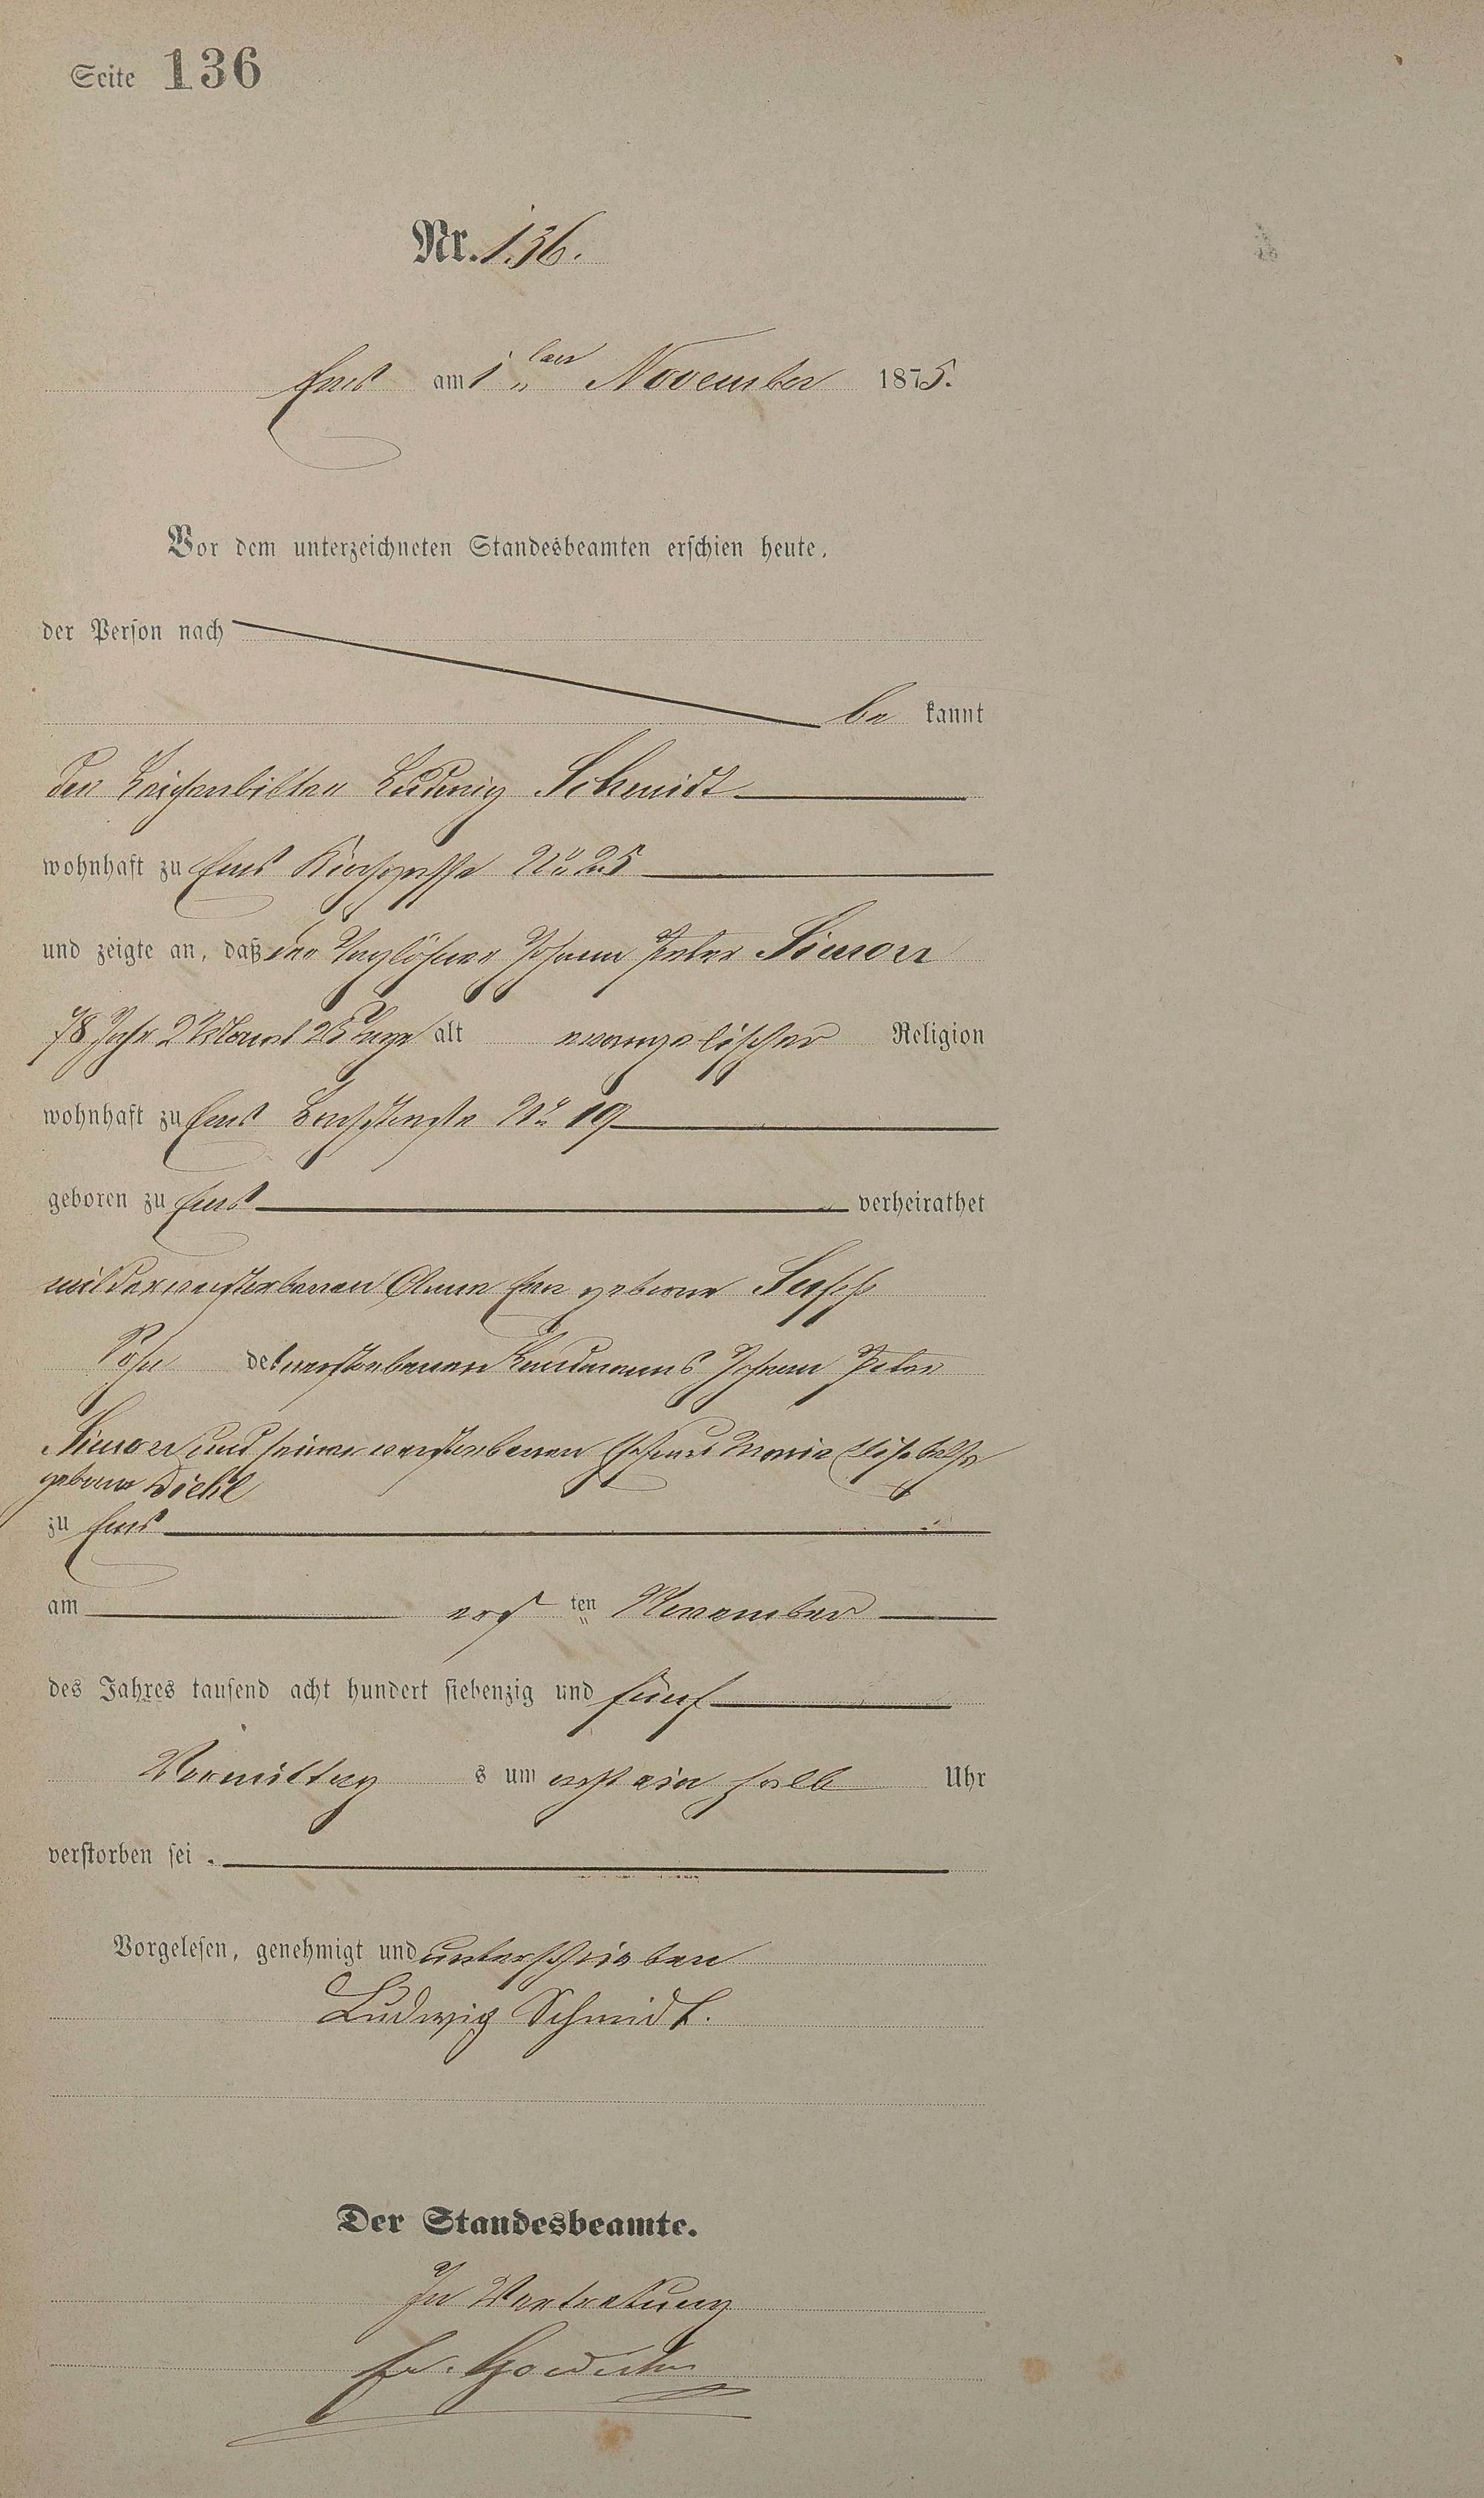 Seite 136
Nr. 136.
Ems am 1ten November 1875.
Vor dem unterzeichneten Standesbeamten erschien heute,
der Person nach
be kannt
der Leichenbitter Ludwig Schmidt
wohnhaft zu Ems Kirchgasse No 25
und zeigte an, daß der Taglöhner Johann Peter Simon
78 Jahr 2 Monat 26 Tage alt evangelischer Religion
wohnhaft zu Ems No 19
geboren zu Ems verheirathet
mit der verstorbenen Anna Eva geborne
Sohn des verstorbenen Johann Peter
Simon und seiner verstorbenen Ehefrau Maria Elisabetha
geborne Diehl
zu Ems
am ersten November
des Jahres tausend acht hundert siebenzig und fünf
Vormittag s um acht ein halb Uhr
verstorben sei.
Vorgelesen, genehmigt und unterschrieben
Ludwig Schmidt.
Der Standesbeamte.
In Vertretung
Fr.